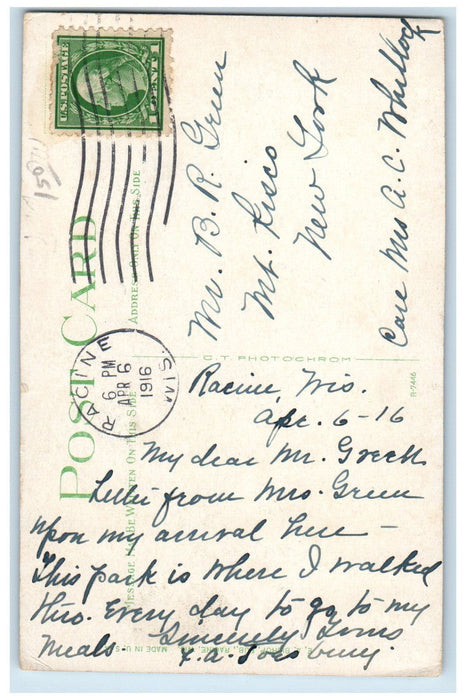 POST CARD
ADDRESS ONLY ON THIS SIDE
MESSAGE MAY BE WRITTEN ON THIS SIDE
U.S. POSTAGE
1 CENT 1
150
RACINE WIS.
6 PM
APR 6
1916
Mr. B. R. Green
Mt. Kisco
New York
Care Mrs A. C. Whitlock
C.T. PHOTOCHROM
R-7446
Racine, Wis.
Apr. 6-16
My dear Mr. Green
Letter from Mrs. Green
upon my arrival here -
This park is where I walked
thro. Every day to go to my
meals Sincerely Yours
F. A.
PUB., RACINE, WIS.
MADE IN U.S.